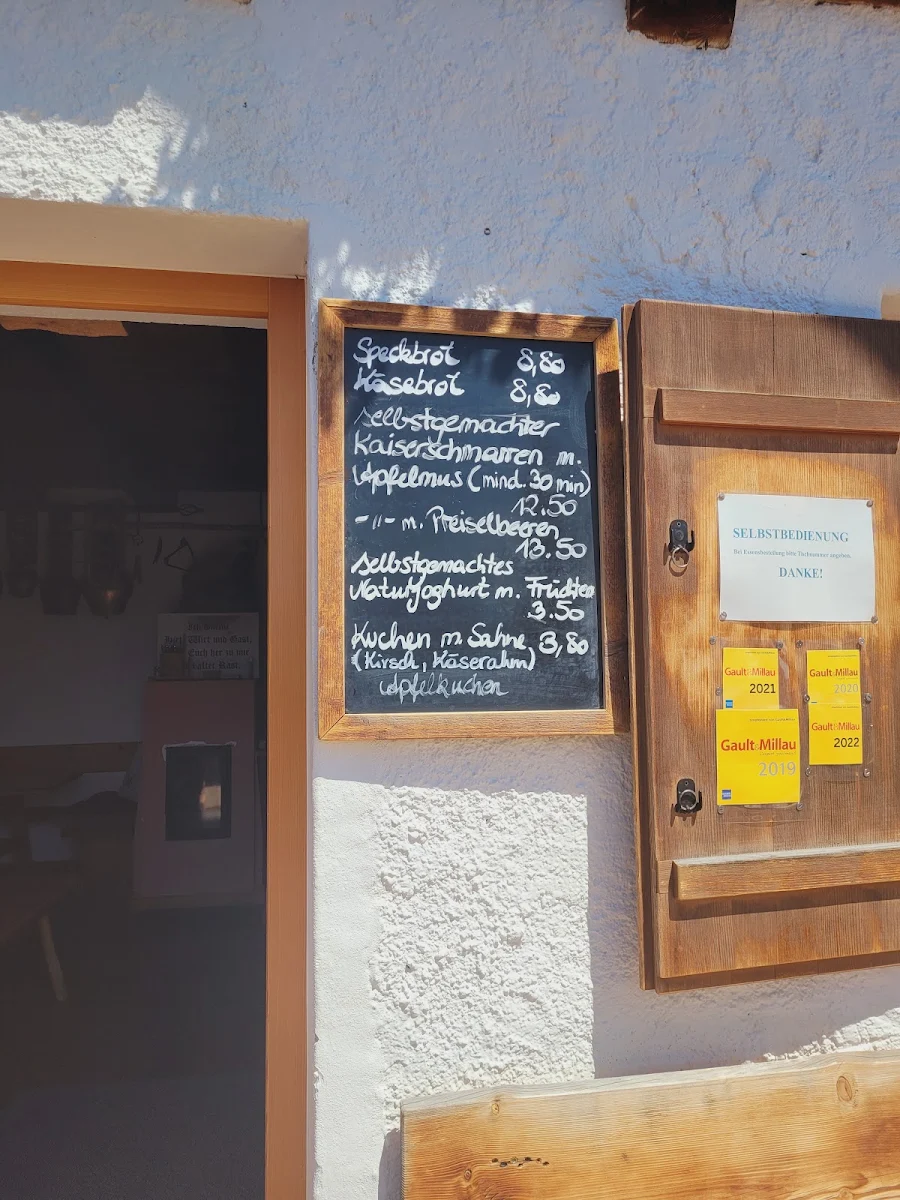 Speckbrot 8,80
Käsebrot 8,80
selbstgemachter
Kaiserschmarren m.
Apfelmus (mind. 30 min)
12.50
-"- m. Preiselbeeren
13.50
selbstgemachtes
Naturjoghurt m. Früchten
3.50
Kuchen m. Sahne 3,80
(Kirsch, Käserahm)
Apfelkuchen
SELBSTBEDIENUNG
Bei Essensbestellung bitte Tischnummer angeben.
DANKE!
Gault&Millau
2021
Gault&Millau
2020
Gault&Millau
2019
Gault&Millau
2022
Wirt und Gast,
Euch her zu mir
haltet Rast.